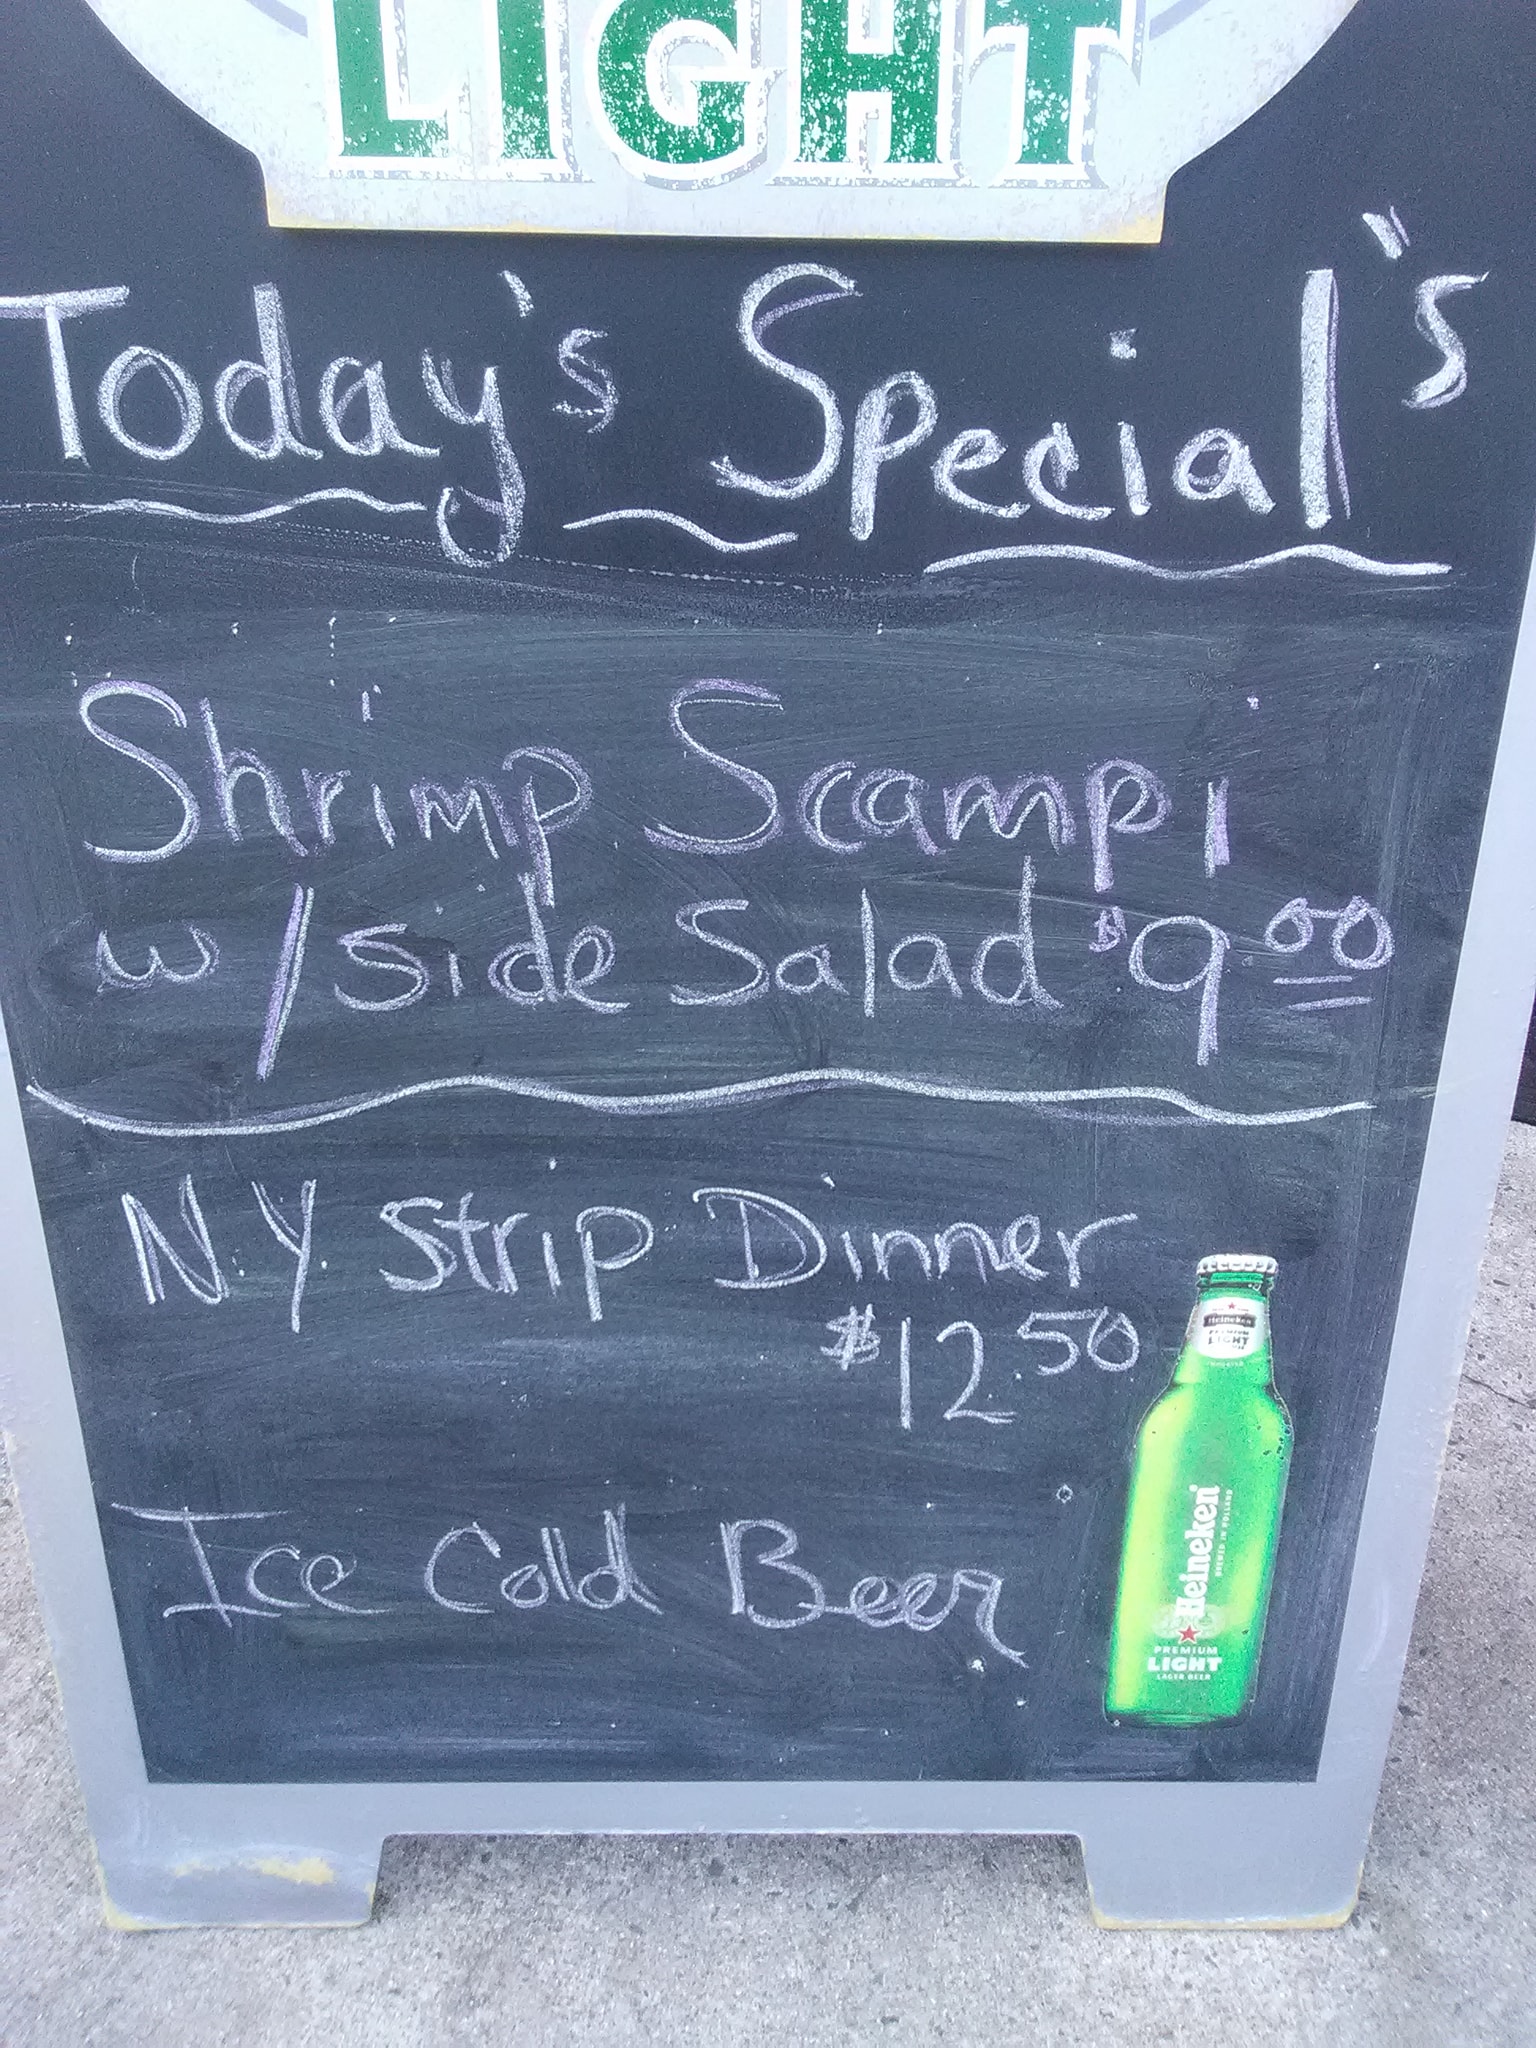 LIGHT
Today's Special's
Shrimp Scampi
w/side Salad $9.00
NY Strip Dinner
$12 50
Ice Cold Beer
Heineken
PREMIUM
LIGHT
Heineken
BREWED IN HOLLAND
PREMIUM
LIGHT
LAGER BEER